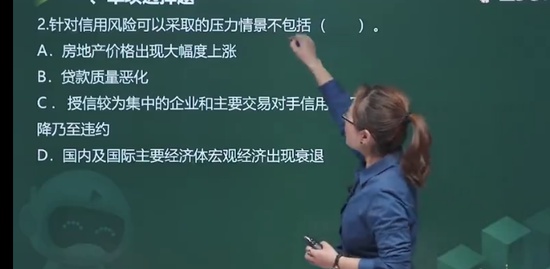 2.针对信用风险可以采取的压力情景不包括（　　）。
A．房地产价格出现大幅度上涨
B．贷款质量恶化
C．授信较为集中的企业和主要交易对手信用
降乃至违约
D．国内及国际主要经济体宏观经济出现衰退